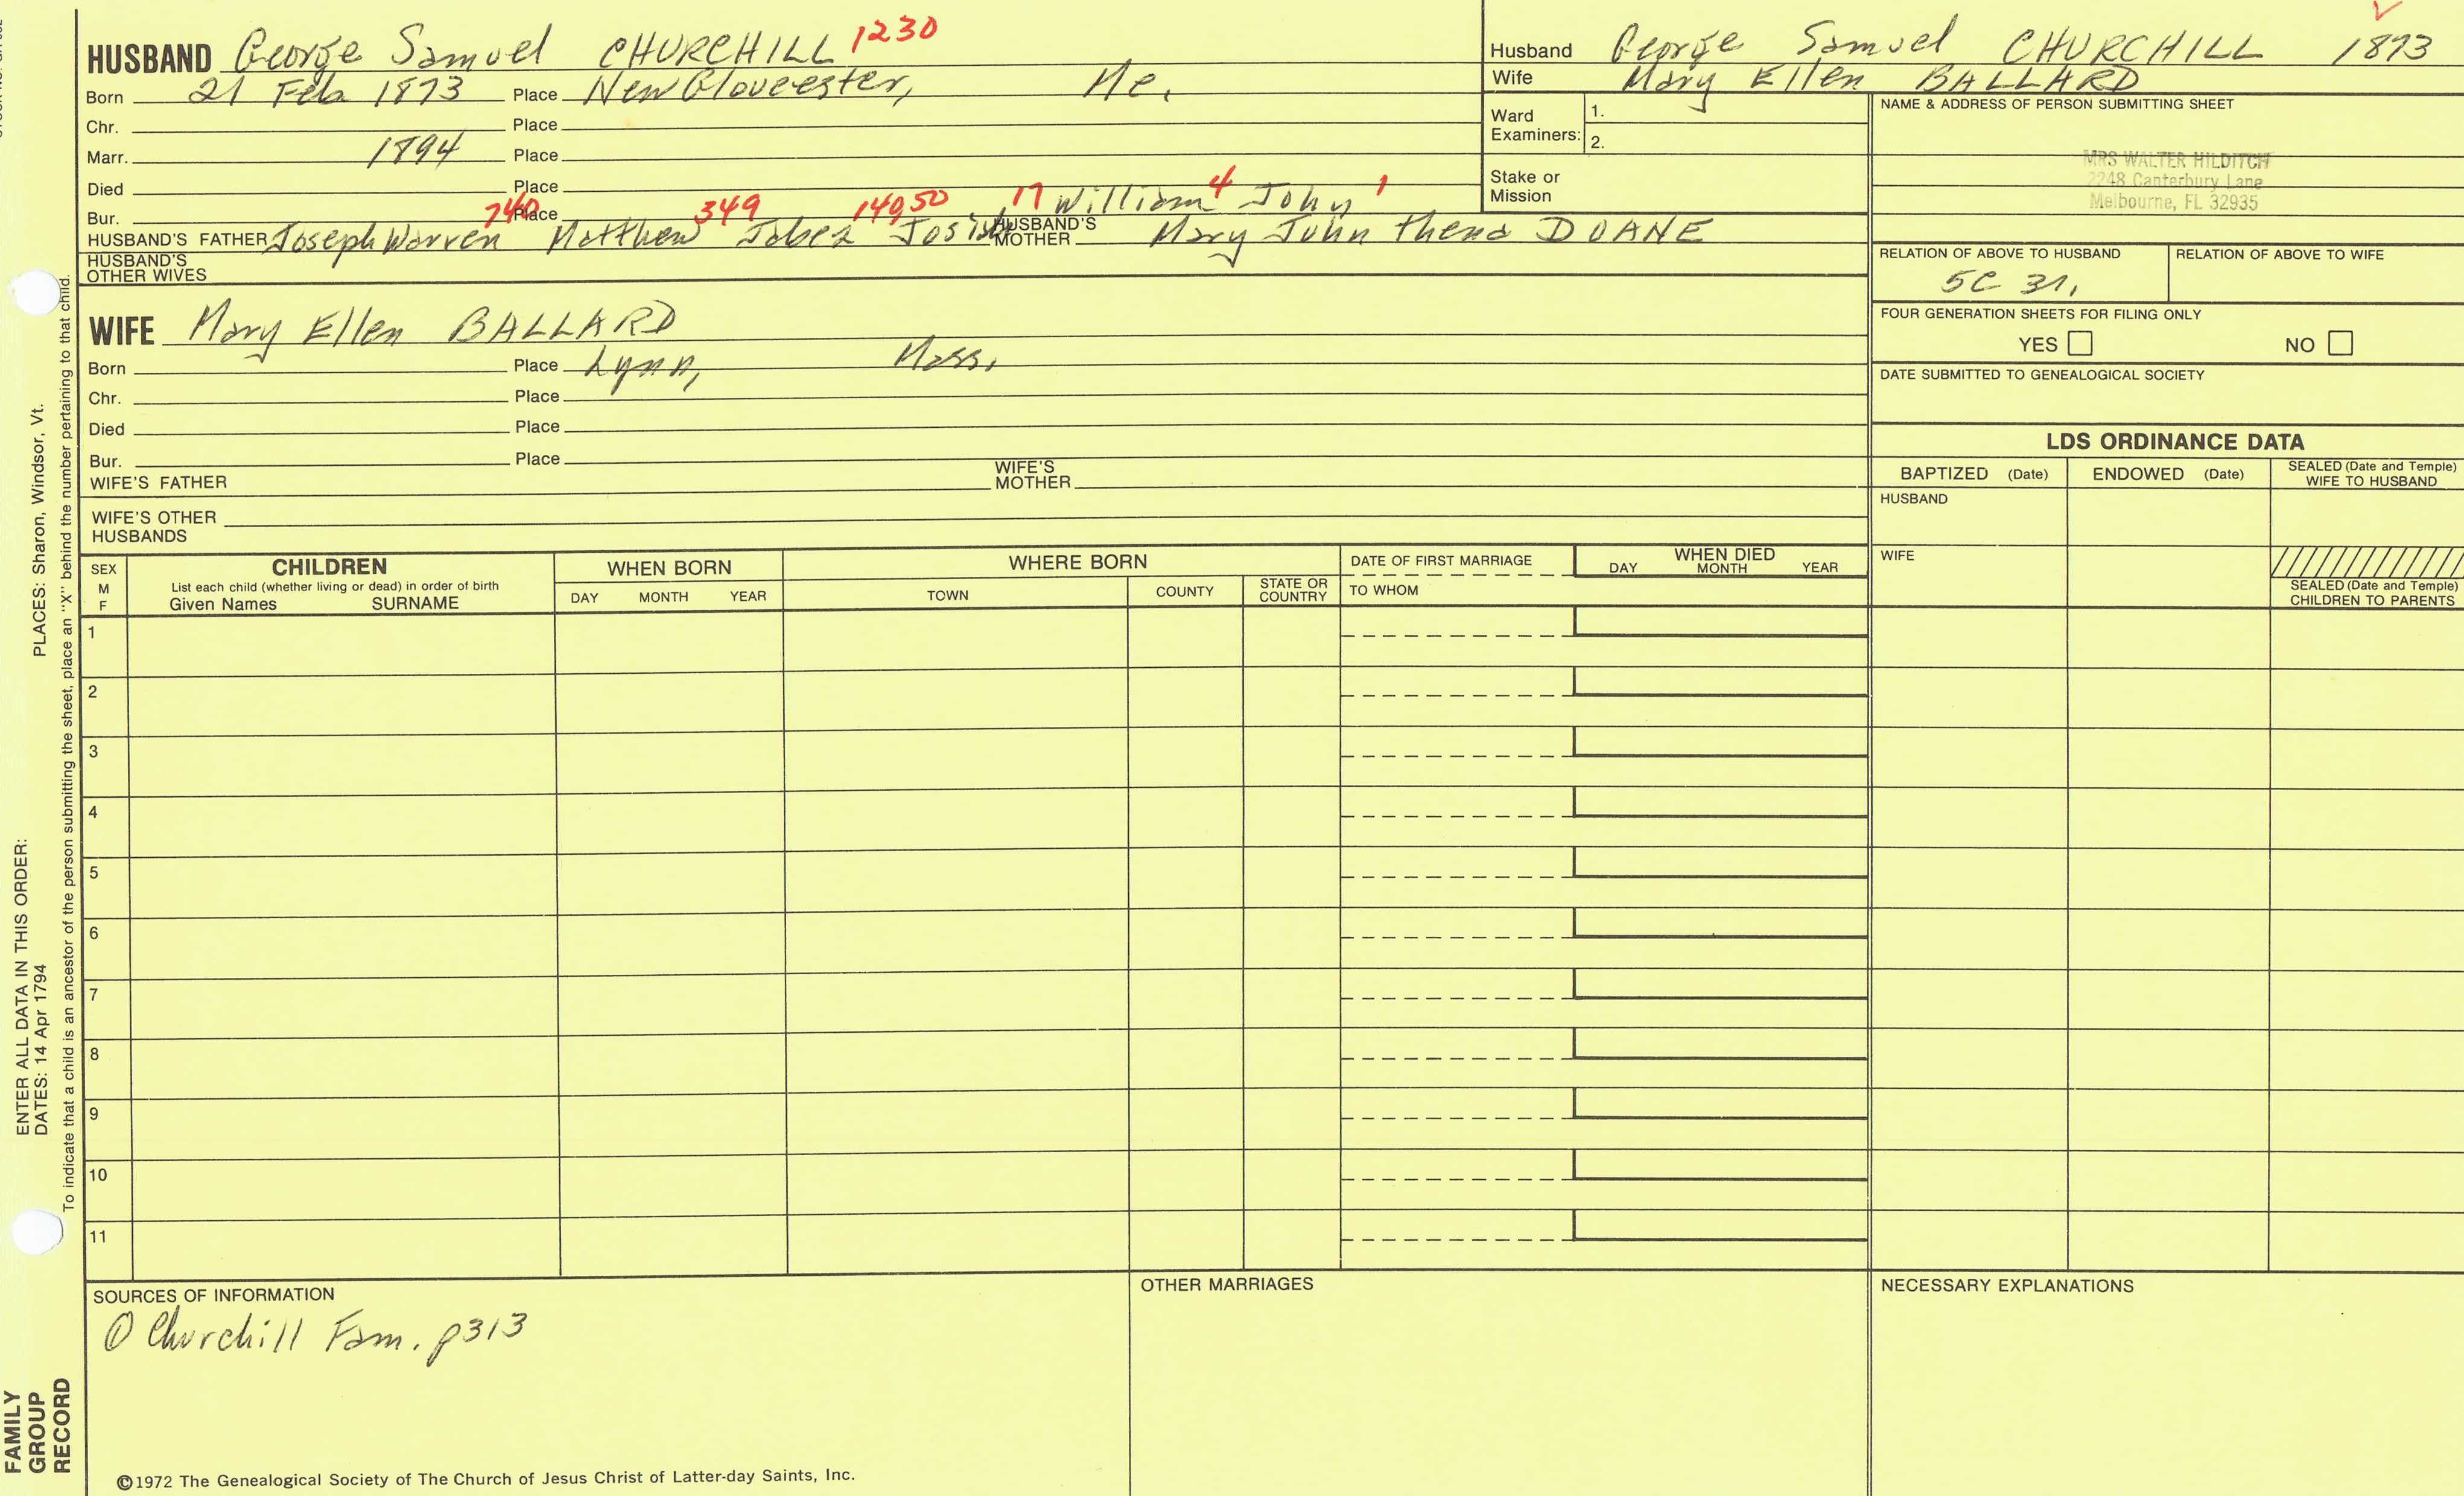 HUSBAND George Samuel CHURCHILL 1230
Born 21 Feb 1873 Place New Gloucester, Me.
Chr. Place
Marr. 1894 Place
Died Place
Bur. Place
740 349 149 50 17 4 1
HUSBAND'S FATHER Joseph Warren Matthew Jabez Josiah William John
HUSBAND'S MOTHER Mary John thena DOANE
HUSBAND'S
OTHER WIVES
WIFE Mary Ellen BALLARD
Born Place Lynn, Mass.
Chr. Place
Died Place
Bur. Place
WIFE'S FATHER
WIFE'S
MOTHER
WIFE'S OTHER
HUSBANDS
Husband George Samuel CHURCHILL 1873
Wife Mary Ellen BALLARD
Ward
Examiners:
1.
2.
Stake or
Mission
NAME & ADDRESS OF PERSON SUBMITTING SHEET
MRS WALTER HILDITCH
2248 Canterbury Lane
Melbourne, FL 32935
RELATION OF ABOVE TO HUSBAND
5C 3r,
RELATION OF ABOVE TO WIFE
FOUR GENERATION SHEETS FOR FILING ONLY
YES NO
DATE SUBMITTED TO GENEALOGICAL SOCIETY
LDS ORDINANCE DATA
BAPTIZED (Date) ENDOWED (Date) SEALED (Date and Temple)
WIFE TO HUSBAND
HUSBAND
WIFE
SEALED (Date and Temple)
CHILDREN TO PARENTS
SEX
M
F
CHILDREN
List each child (whether living or dead) in order of birth
Given Names SURNAME
WHEN BORN
DAY MONTH YEAR
WHERE BORN
TOWN COUNTY STATE OR
COUNTRY
DATE OF FIRST MARRIAGE
TO WHOM
WHEN DIED
DAY MONTH YEAR
1
2
3
4
5
6
7
8
9
10
11
SOURCES OF INFORMATION
① Churchill Fam. p313
OTHER MARRIAGES
NECESSARY EXPLANATIONS
©1972 The Genealogical Society of The Church of Jesus Christ of Latter-day Saints, Inc.
FAMILY
GROUP
RECORD
ENTER ALL DATA IN THIS ORDER:
DATES: 14 Apr 1794 PLACES: Sharon, Windsor, Vt.
To indicate that a child is an ancestor of the person submitting the sheet, place an "X" behind the number pertaining to that child.